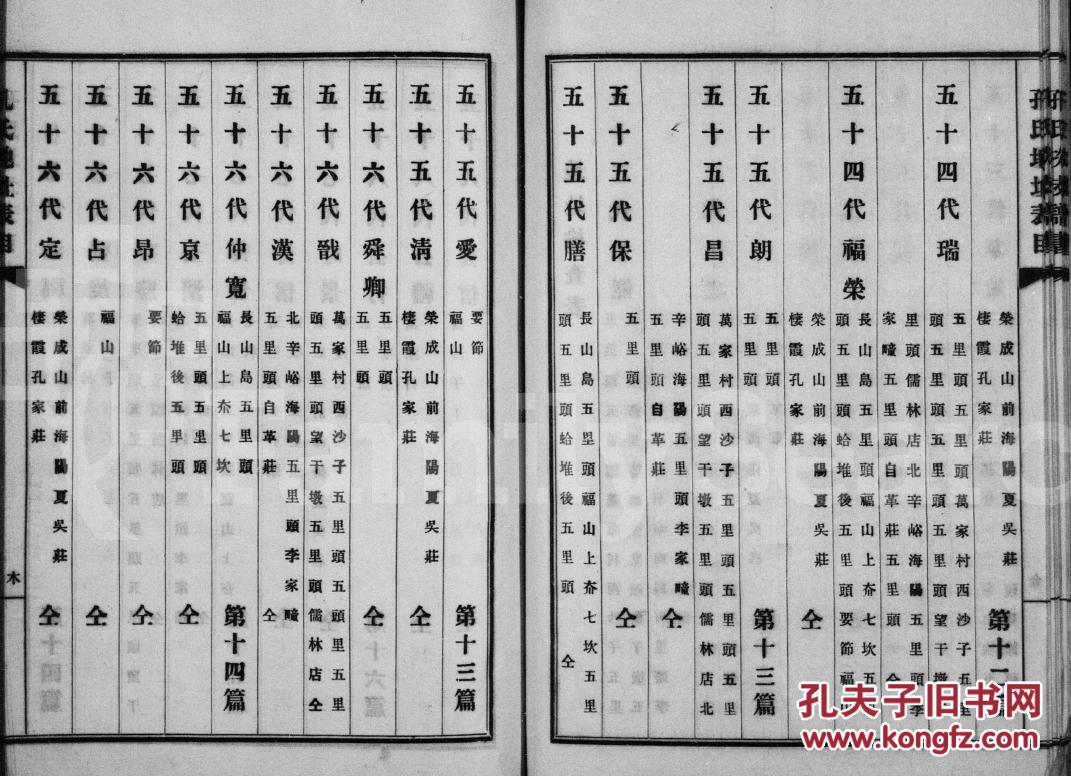 五十四代瑞
榮成山前海陽夏吳莊
棲霞孔家莊
五里頭五五里頭萬家村西沙子五里
頭五里頭五五里頭望干墩
里頭儒林店北辛峪海陽五里頭李
家疃五里頭自革莊五里頭 仝
五十四代福榮
長山島五里頭福山上夼七坎五
頭五里頭蛤堆後五里頭要節福
榮成山前海陽夏吳莊 仝
棲霞孔家
五十五代朗
五里頭 第十三篇
五里頭
五十五代昌
萬家村西沙子五里頭五里頭五里
頭五里頭望干墩五里頭儒林店北
辛峪海陽五里頭李家疃 仝
五里頭自革莊
五十五代保
五里頭 仝
五十五代膳
長山島五里頭福山上夼七坎五里
頭五里頭蛤堆後五里頭 仝
五十五代愛
要節 第十三篇
福山
五十五代清
榮成山前海陽夏吳莊 仝
棲霞孔家莊
五十六代舜卿
五里頭 仝
五里頭
五十六代戩
萬家村西沙子五里頭五頭里五里
頭五里頭望干墩五里頭儒林店仝
五十六代漢
北辛峪海陽五里頭李家疃
五里頭自革莊 仝
五十六代仲寬
長山島五里頭 第十四篇
福山夼七坎
五十六代京
五里頭五里頭 仝
蛤堆後五里頭
五十六代昂
要節 仝
五十六代占
福山 仝
五十六代定
榮成山前海陽夏吳莊 仝
棲霞孔家莊
木
孔夫子旧书网
www.kongfz.com